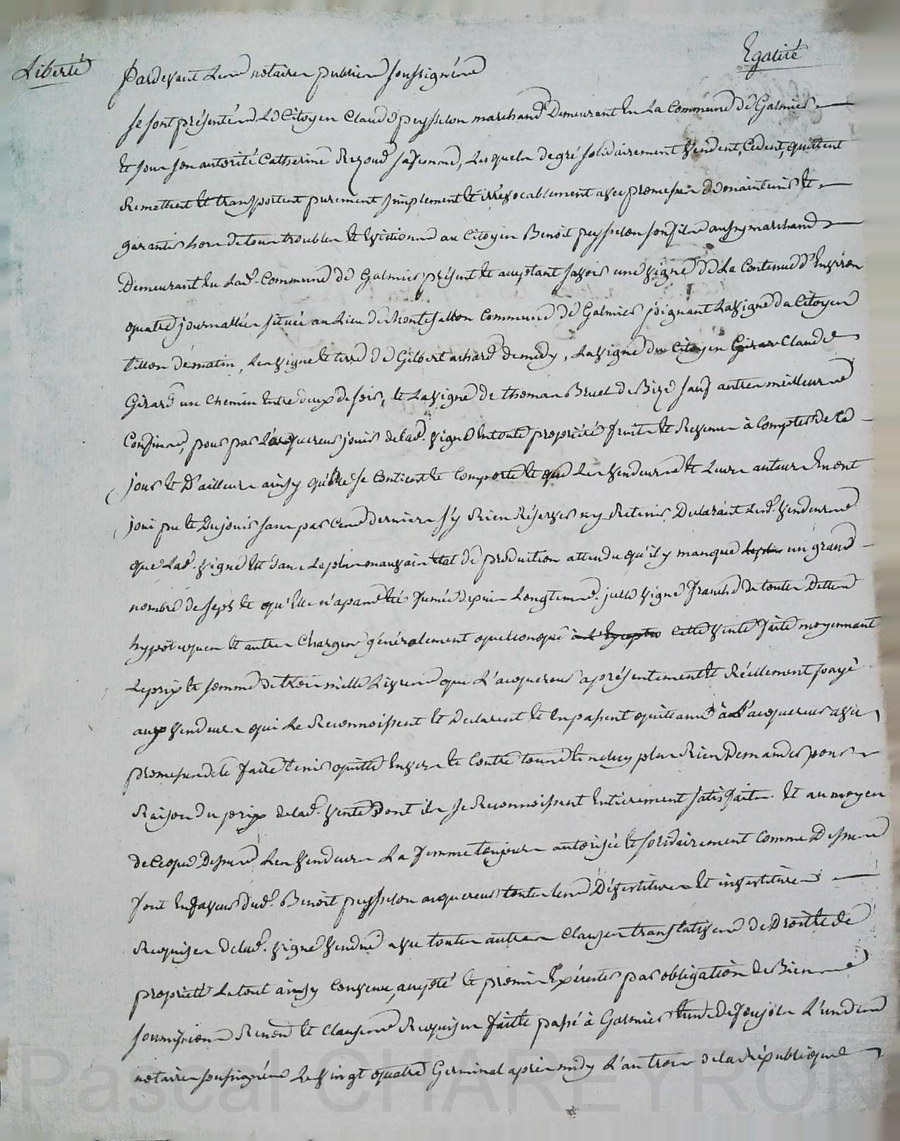 Liberté
Egalité
Pardevant Les notaires publics soussignés
se sont présentés Le Citoyen Claude peysselon marchand Demeurant En La Commune de Galmier
Et sous son autorité Catherine sa femme, Lesquels de gré solidairement Vendent, Cedent, quittent
Remettent Et transportent purement simplement Et irrévocablement avec promesse De maintenir Et
garantir hors de tous troubles Et Evictions au Citoyen Benoit peysselon son fils aussy marchand
Demeurant En Lad. Commune de Galmier présent Et acceptant savoir une Vigne De La Contenue D'Environ
quatre journallées située au Lieu de Commune de Galmier joignant La Vigne du Citoyen
tillon de matin, Les Vigne Et terre de Gilbert achard de midy, La Vigne du Citoyen Claude
Girard un Chemin Entre deux de soir, Et La Vigne de thomas Bruel de Bize sauf autres meilleurs
Confins, pour par L'acquereur jouir de lad. Vigne En toute propriété fruits Et Revenus à Compter de Ce
jour Et D'ailleurs ainsy qu'elle se Contient Et Comporte Et que Les Vendeurs Et Leurs auteurs En ont
joui pu Et Du jouir sans par Ces derniers s'y Rien Réserver ny Retenir, Declarant Lesd. Vendeurs
que Lad. Vigne Est dans Le plus mauvais Etat de production attendu qu'il y manque un grand
nombre de seps Et qu'Elle n'a pas Eté fumée depuis Longtems. jcelle Vigne franche de toutes Dettes
hypoteques Et autres Charges généralement quelconques Cette Vente faite moyennant
Le prix Et somme de trois mille Livres que L'acquereur a présentement Et Réellement payé
aux Vendeurs qui Le Reconnoissent Et Declarent Et En passent quittance à L'acquereur avec
promesse de Le faire tenir quitte Envers Et Contre tous Et ne luy plus Rien Demander pour
Raison du prix de lad. Vente Dont ils se Reconnoissent Entierement satisfaits. Et au moyen
de Ce que Dessus Les Vendeurs La femme toujours autorisée Et solidairement Comme Dessus
font En faveur dud. Benoit peysselon acquereur toutes Les Devestitures Et investitures
Requises de lad. Vigne Vendue avec toutes autres Clauses translatives de Droits de
propriété Le tout ainsy Convenu, accepté Et promis Executer par obligation de Biens
soumissions Et Clauses Requises fait Et passé à Galmier Etude de L'un des
notaires soussignés Le Vingt quatre Germinal après midy L'an trois de la République
Pascal CHAREYRON